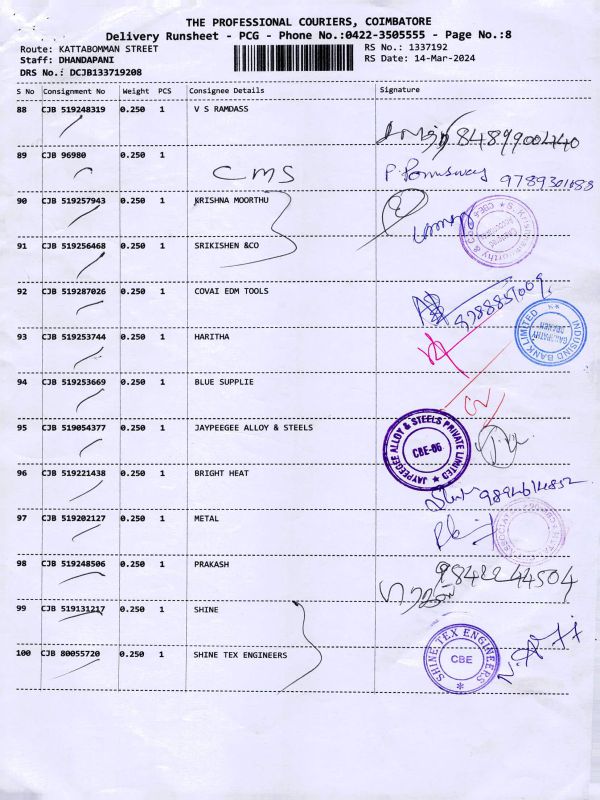 THE PROFESSIONAL COURIERS, COIMBATORE
Delivery Runsheet - PCG - Phone No.:0422-3505555 - Page No.:8
Route: KATTABOMMAN STREET RS No.: 1337192
Staff: DHANDAPANI RS Date: 14-Mar-2024
DRS No.: DCJB133719208
S No Consignment No Weight PCS Consignee Details Signature
88 CJB 519248319 0.250 1 V S RAMDASS
89 CJB 96980 0.250 1
CMS
9789301088
90 CJB 519257943 0.250 1 KRISHNA MOORTHU
91 CJB 519256468 0.250 1 SRIKISHEN &CO
92 CJB 519287026 0.250 1 COVAI EDM TOOLS
INDUSIND BANK LIMITED
GANAPATHY BRANCH
93 CJB 519253744 0.250 1 HARITHA
94 CJB 519253669 0.250 1 BLUE SUPPLIE
95 CJB 519054377 0.250 1 JAYPEEGEE ALLOY & STEELS
JAYPEEGEE ALLOY & STEELS PRIVATE LIMITED
CBE-06
96 CJB 519221438 0.250 1 BRIGHT HEAT
97 CJB 519202127 0.250 1 METAL
98 CJB 519248506 0.250 1 PRAKASH
9842244504
99 CJB 519131217 0.250 1 SHINE
100 CJB 80055720 0.250 1 SHINE TEX ENGINEERS
SHINE TEX ENGINEERS
CBE